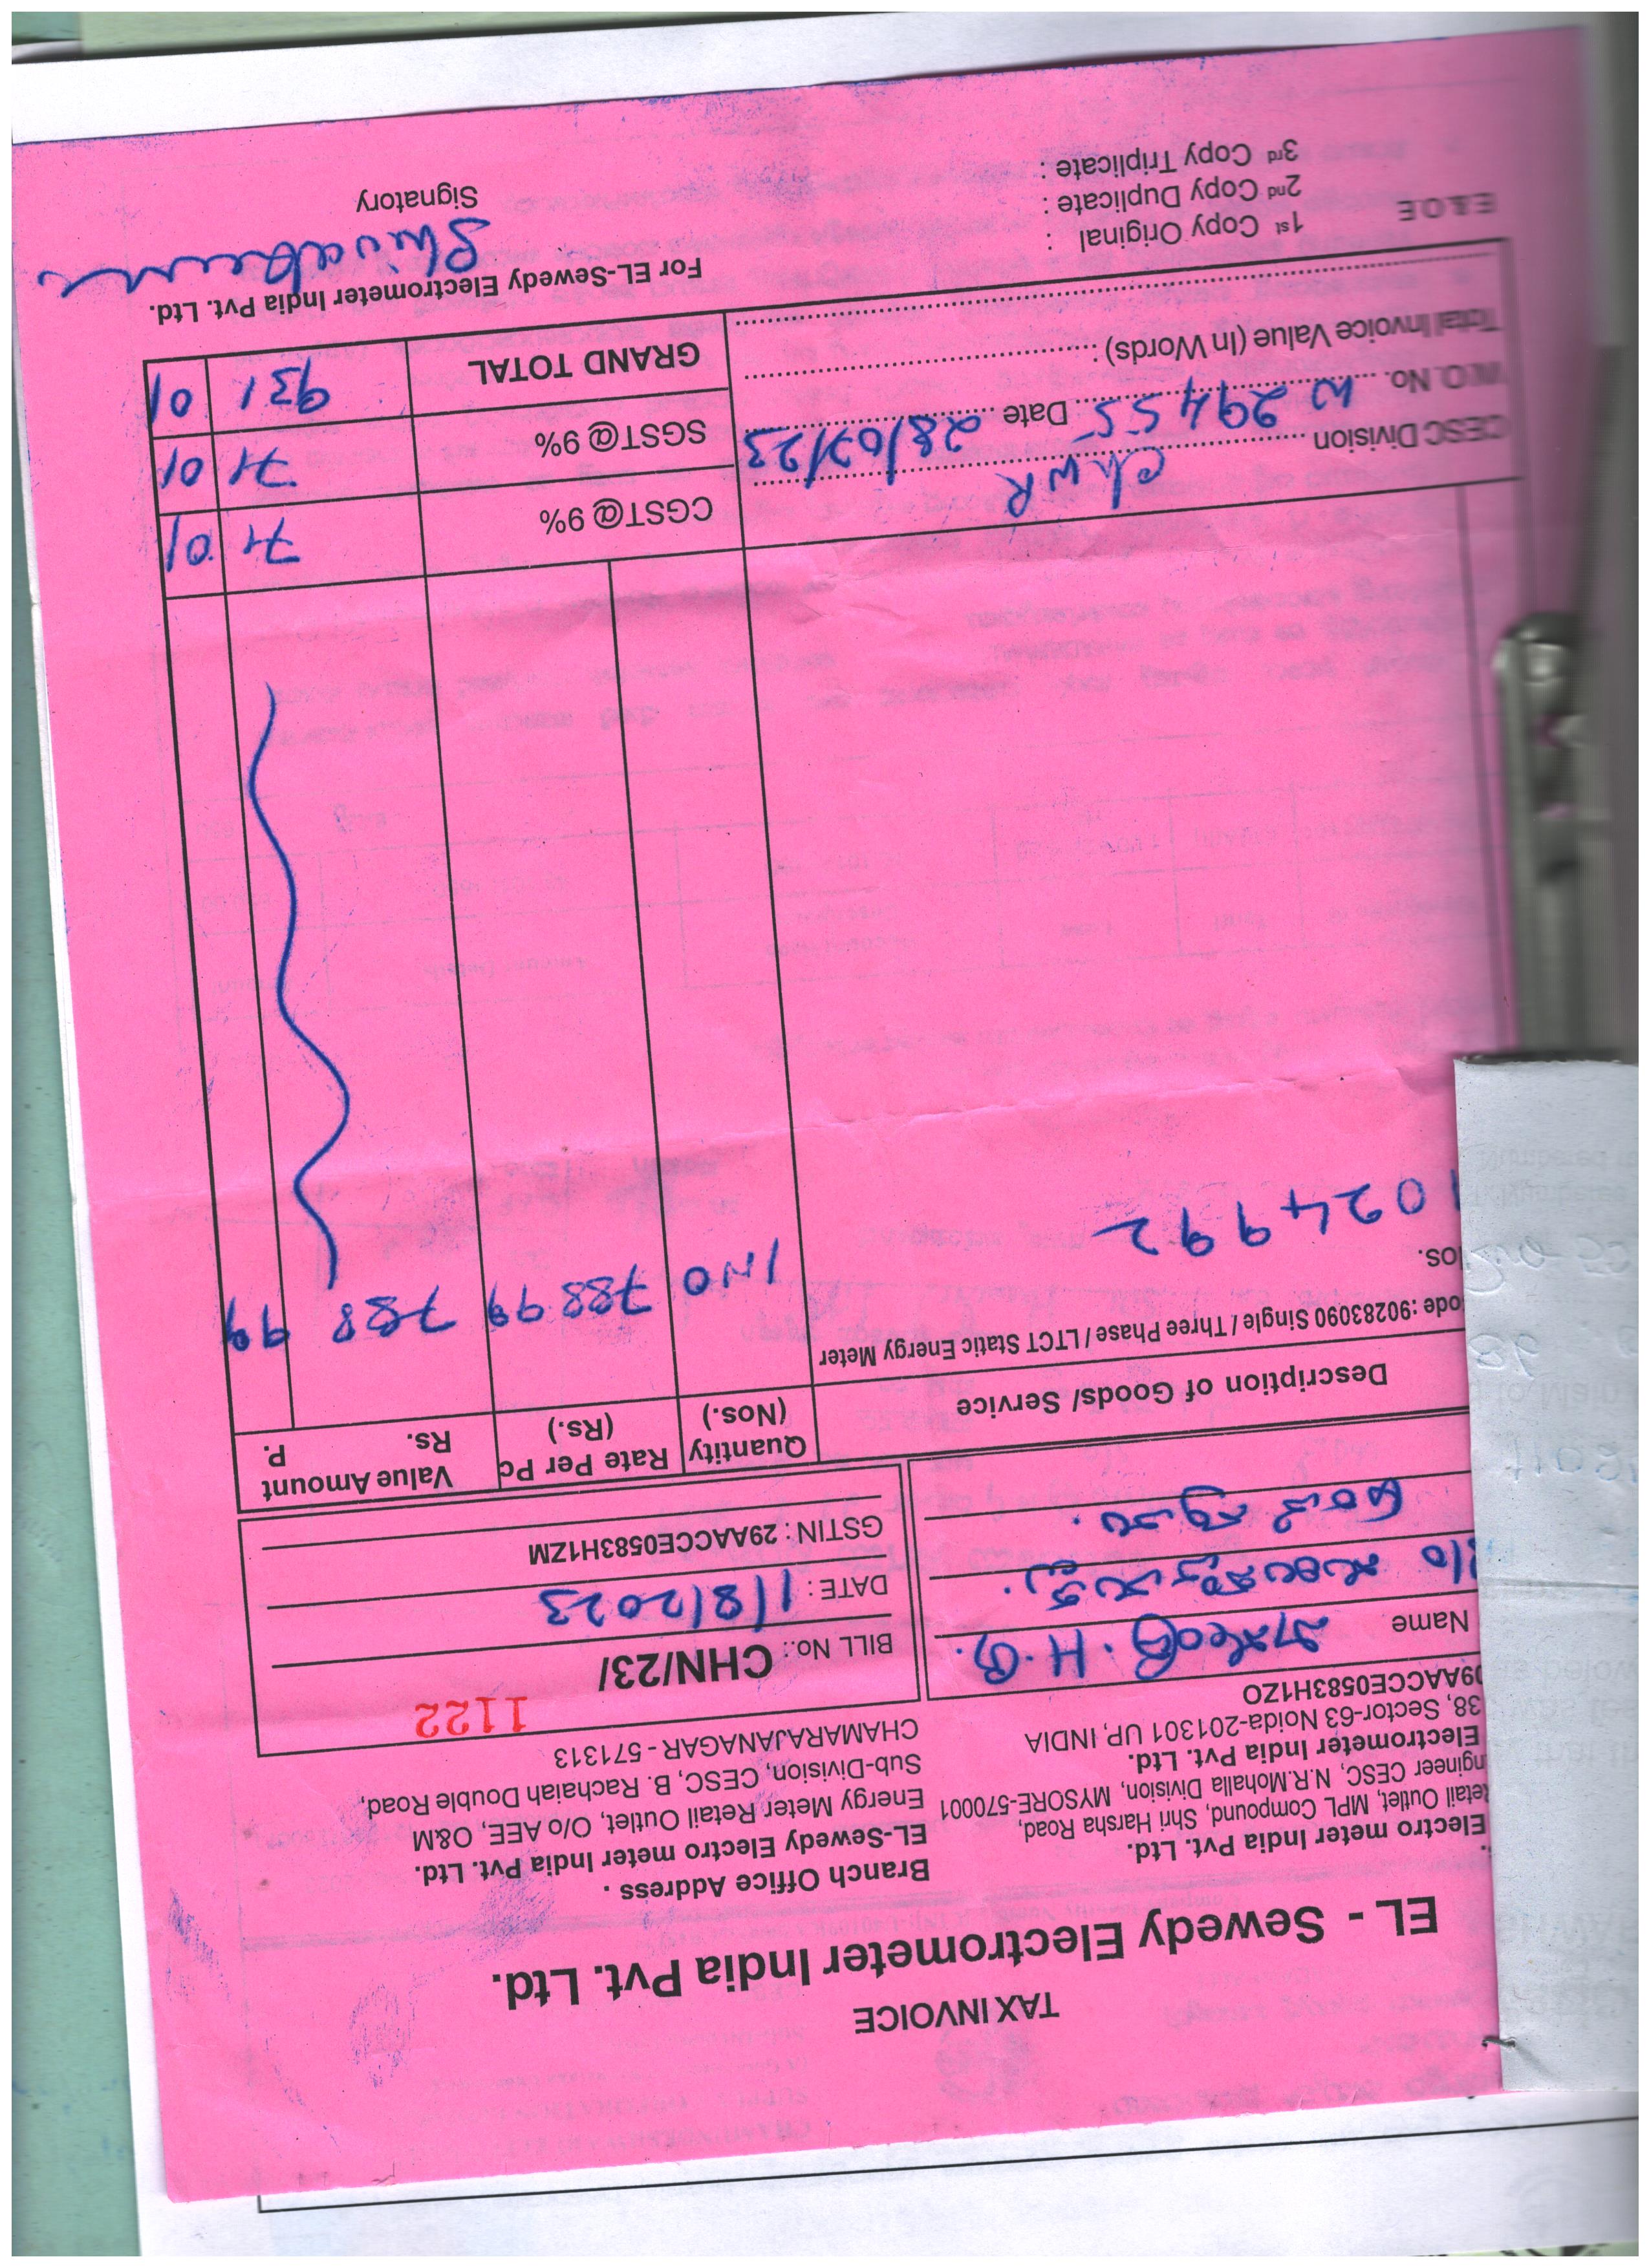 TAX INVOICE
EL - Sewedy Electrometer India Pvt. Ltd.
Electro meter India Pvt. Ltd.
Retail Outlet, MPL Compound, Shri Harsha Road,
ngineer CESC, N.R.Mohalla Division, MYSORE-570001
Electrometer India Pvt. Ltd.
38, Sector-63 Noida-201301 UP, INDIA
09AACCE0583H1ZO
Branch Office Address .
EL-Sewedy Electro meter India Pvt. Ltd.
Energy Meter Retail Outlet, O/o AEE, O&M
Sub-Division, CESC, B. Rachaiah Double Road,
CHAMARAJANAGAR - 571313
Name
BILL No.: CHN/23/ 1122
DATE : 1/8/2023
GSTIN : 29AACCE0583H1ZM
Description of Goods/ Service Quantity (Nos.) Rate Per Pc (Rs.) Value Amount Rs. P.
ode :90283090 Single / Three Phase / LTCT Static Energy Meter
los. 1NO 788 99 788 99
1024992
CGST@ 9% 71 01
CESC Division CHNR SGST@ 9% 71 01
W.O. No. W 29455 Date 28/07/23
Total Invoice Value (In Words) : GRAND TOTAL 931 01
E.& O.E
1st Copy Original :
2nd Copy Duplicate :
3rd Copy Triplicate :
For EL-Sewedy Electrometer India Pvt. Ltd.
Signatory